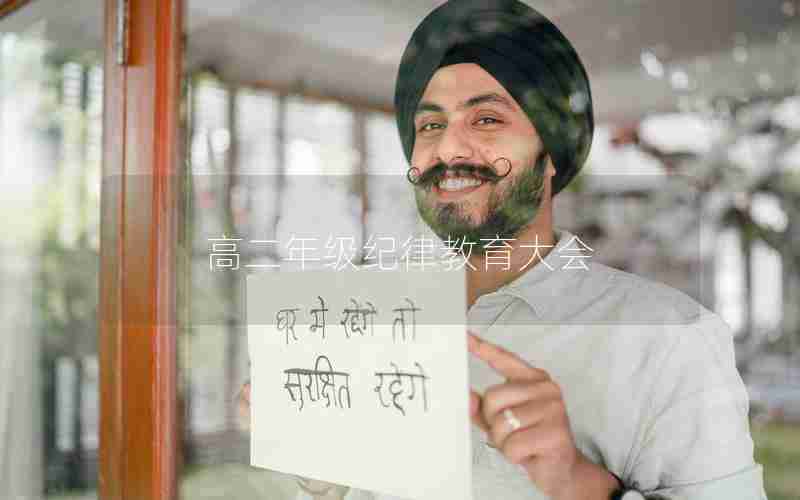 高二年级纪律教育大会
घर मे रहेंगे तो
सुरक्षित रहेगे